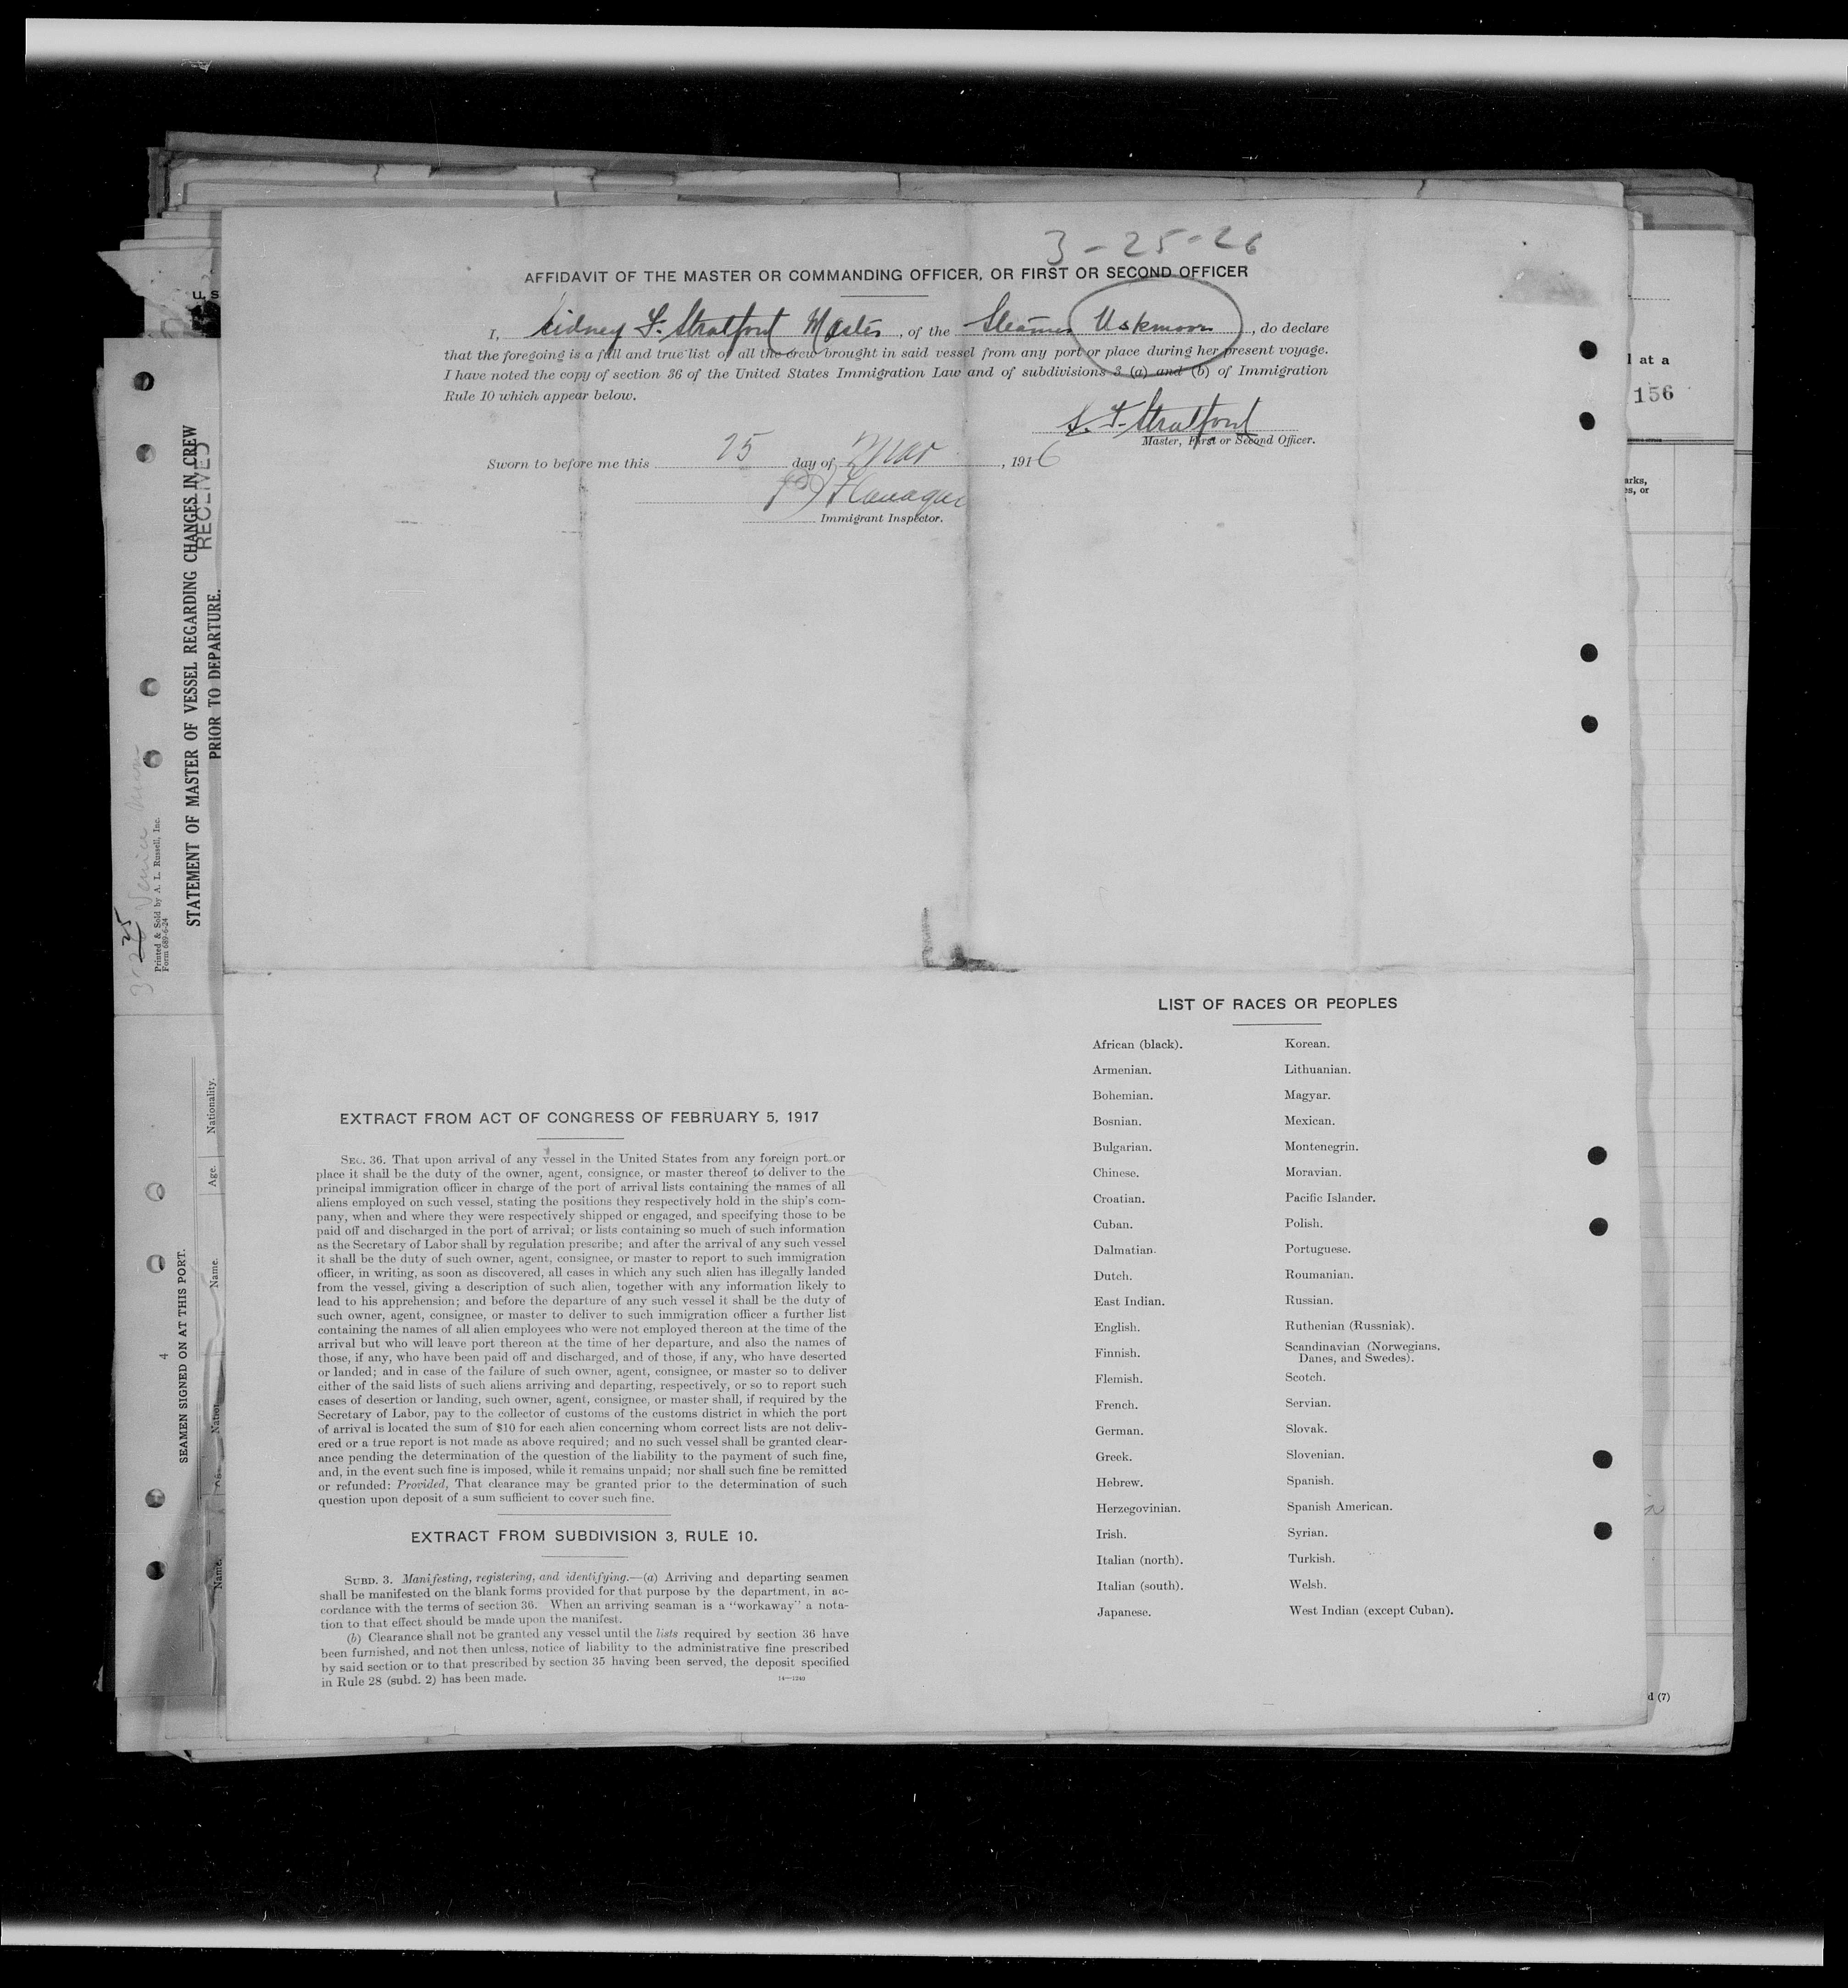 3-25-26
AFFIDAVIT OF THE MASTER OR COMMANDING OFFICER, OR FIRST OR SECOND OFFICER
I, Sidney F. Stratford Master, of the Steamer Uskmoor, do declare
that the foregoing is a full and true list of all the crew brought in said vessel from any port or place during her present voyage.
I have noted the copy of section 36 of the United States Immigration Law and of subdivisions 3 (a) and (b) of Immigration
Rule 10 which appear below.
S. F. Stratford
Master, First or Second Officer.
Sworn to before me this 25 day of Mar, 1916
Flanagan
Immigrant Inspector.
EXTRACT FROM ACT OF CONGRESS OF FEBRUARY 5, 1917
SEC. 36. That upon arrival of any vessel in the United States from any foreign port or
place it shall be the duty of the owner, agent, consignee, or master thereof to deliver to the
principal immigration officer in charge of the port of arrival lists containing the names of all
aliens employed on such vessel, stating the positions they respectively hold in the ship's com-
pany, when and where they were respectively shipped or engaged, and specifying those to be
paid off and discharged in the port of arrival; or lists containing so much of such information
as the Secretary of Labor shall by regulation prescribe; and after the arrival of any such vessel
it shall be the duty of such owner, agent, consignee, or master to report to such immigration
officer, in writing, as soon as discovered, all cases in which any such alien has illegally landed
from the vessel, giving a description of such alien, together with any information likely to
lead to his apprehension; and before the departure of any such vessel it shall be the duty of
such owner, agent, consignee, or master to deliver to such immigration officer a further list
containing the names of all alien employees who were not employed thereon at the time of the
arrival but who will leave port thereon at the time of her departure, and also the names of
those, if any, who have been paid off and discharged, and of those, if any, who have deserted
or landed; and in case of the failure of such owner, agent, consignee, or master so to deliver
either of the said lists of such aliens arriving and departing, respectively, or so to report such
cases of desertion or landing, such owner, agent, consignee, or master shall, if required by the
Secretary of Labor, pay to the collector of customs of the customs district in which the port
of arrival is located the sum of $10 for each alien concerning whom correct lists are not deliv-
ered or a true report is not made as above required; and no such vessel shall be granted clear-
ance pending the determination of the question of the liability to the payment of such fine,
and, in the event such fine is imposed, while it remains unpaid; nor shall such fine be remitted
or refunded: Provided, That clearance may be granted prior to the determination of such
question upon deposit of a sum sufficient to cover such fine.
EXTRACT FROM SUBDIVISION 3, RULE 10.
SUBD. 3. Manifesting, registering, and identifying.—(a) Arriving and departing seamen
shall be manifested on the blank forms provided for that purpose by the department, in ac-
cordance with the terms of section 36. When an arriving seaman is a "workaway" a nota-
tion to that effect should be made upon the manifest.
(b) Clearance shall not be granted any vessel until the lists required by section 36 have
been furnished, and not then unless, notice of liability to the administrative fine prescribed
by said section or to that prescribed by section 35 having been served, the deposit specified
in Rule 28 (subd. 2) has been made.
14—1240
LIST OF RACES OR PEOPLES
African (black). Korean.
Armenian. Lithuanian.
Bohemian. Magyar.
Bosnian. Mexican.
Bulgarian. Montenegrin.
Chinese. Moravian.
Croatian. Pacific Islander.
Cuban. Polish.
Dalmatian. Portuguese.
Dutch. Roumanian.
East Indian. Russian.
English. Ruthenian (Russniak).
Finnish. Scandinavian (Norwegians,
Danes, and Swedes).
Flemish. Scotch.
French. Servian.
German. Slovak.
Greek. Slovenian.
Hebrew. Spanish.
Herzegovinian. Spanish American.
Irish. Syrian.
Italian (north). Turkish.
Italian (south). Welsh.
Japanese. West Indian (except Cuban).
Printed & Sold by A. L. Russell, Inc.
Form 689-6-24
STATEMENT OF MASTER OF VESSEL REGARDING CHANGES IN CREW
PRIOR TO DEPARTURE.
RECEIVED
SEAMEN SIGNED ON AT THIS PORT.
4
Name. Age. Nationality.
Name.
U. S
l at a
156
arks,
es, or
d (7)